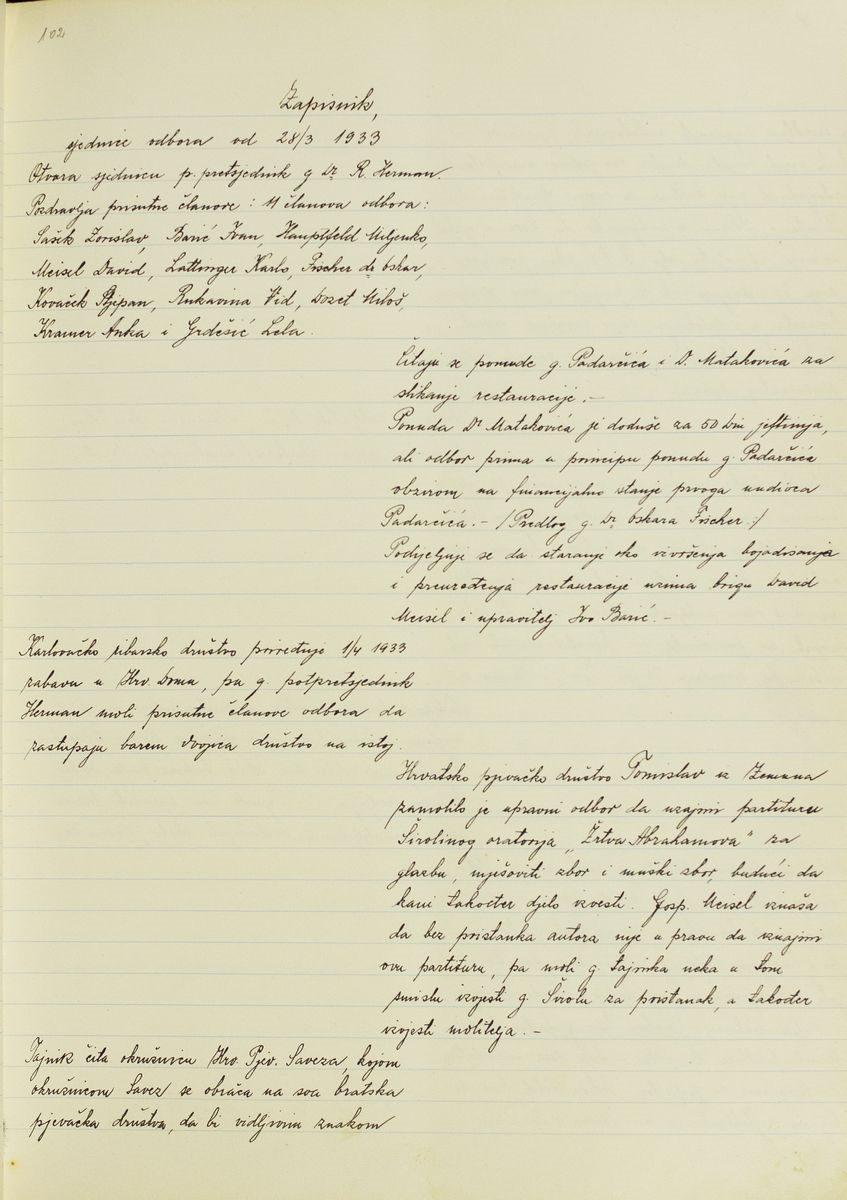 102
Zapisnik,
sjednice odbora od 28/3 1933
Otvara sjednicu p. pretsjednik g Dr. R. Herman.
Pozdravlja prisutne članove: 11 članova odbora:
Sašek Zorislav, Barić Ivan, Hauptfeld Miljenko,
Meisel David, Lattinger Karlo, Fischer dr Oskar,
Kovaček Stjepan, Rukavina Vid, Dozet Miloš,
Kramer Anka i Grdešić Lela.
Čitaju se ponude g. Padarčića i D. Matakovića za
slikanje restauracije. –
Ponuda Dr Matakovića je doduše za 50 Din jeftinija,
ali odbor prima u principu ponudu g. Padarčića
obzirom na financijalno stanje prvoga nudioca
Padarčića. – /Predlog g. Dr. Oskara Fischer:/
Podjeljuje se da staranje oko izvršenja bojadisanja
i preuređenja restauracije uzima brigu David
Meisel i upravitelj Ivo Barić. –
Karlovačko ribarsko društvo priređuje 1/4 1933
zabavu u Hrv. Domu, pa g. potpretsjednik
Herman moli prisutne članove odbora da
zastupaju barem dvojica društvo na istoj.
Hrvatsko pjevačko društvo Tomislav iz Zemuna
zamolilo je upravni odbor da uzajmi partituru
Širolinog oratorija „Žrtva Abrahamova" za
glazbu, mješoviti zbor i muški zbor, budući da
kani također djelo izvesti. Gosp. Meisel iznaša
da bez pristanka autora nije u pravu da iznajmi
ovu partituru, pa moli g. tajnika neka u tom
smislu izvjesti g. Širolu za pristanak, a također
izvjesti molitelja. –
Tajnik čita okružnicu Hrv. Pjev. Saveza, kojom
okružnicom Savez se obraća na sva bratska
pjevačka društva, da bi vidljivim znakom